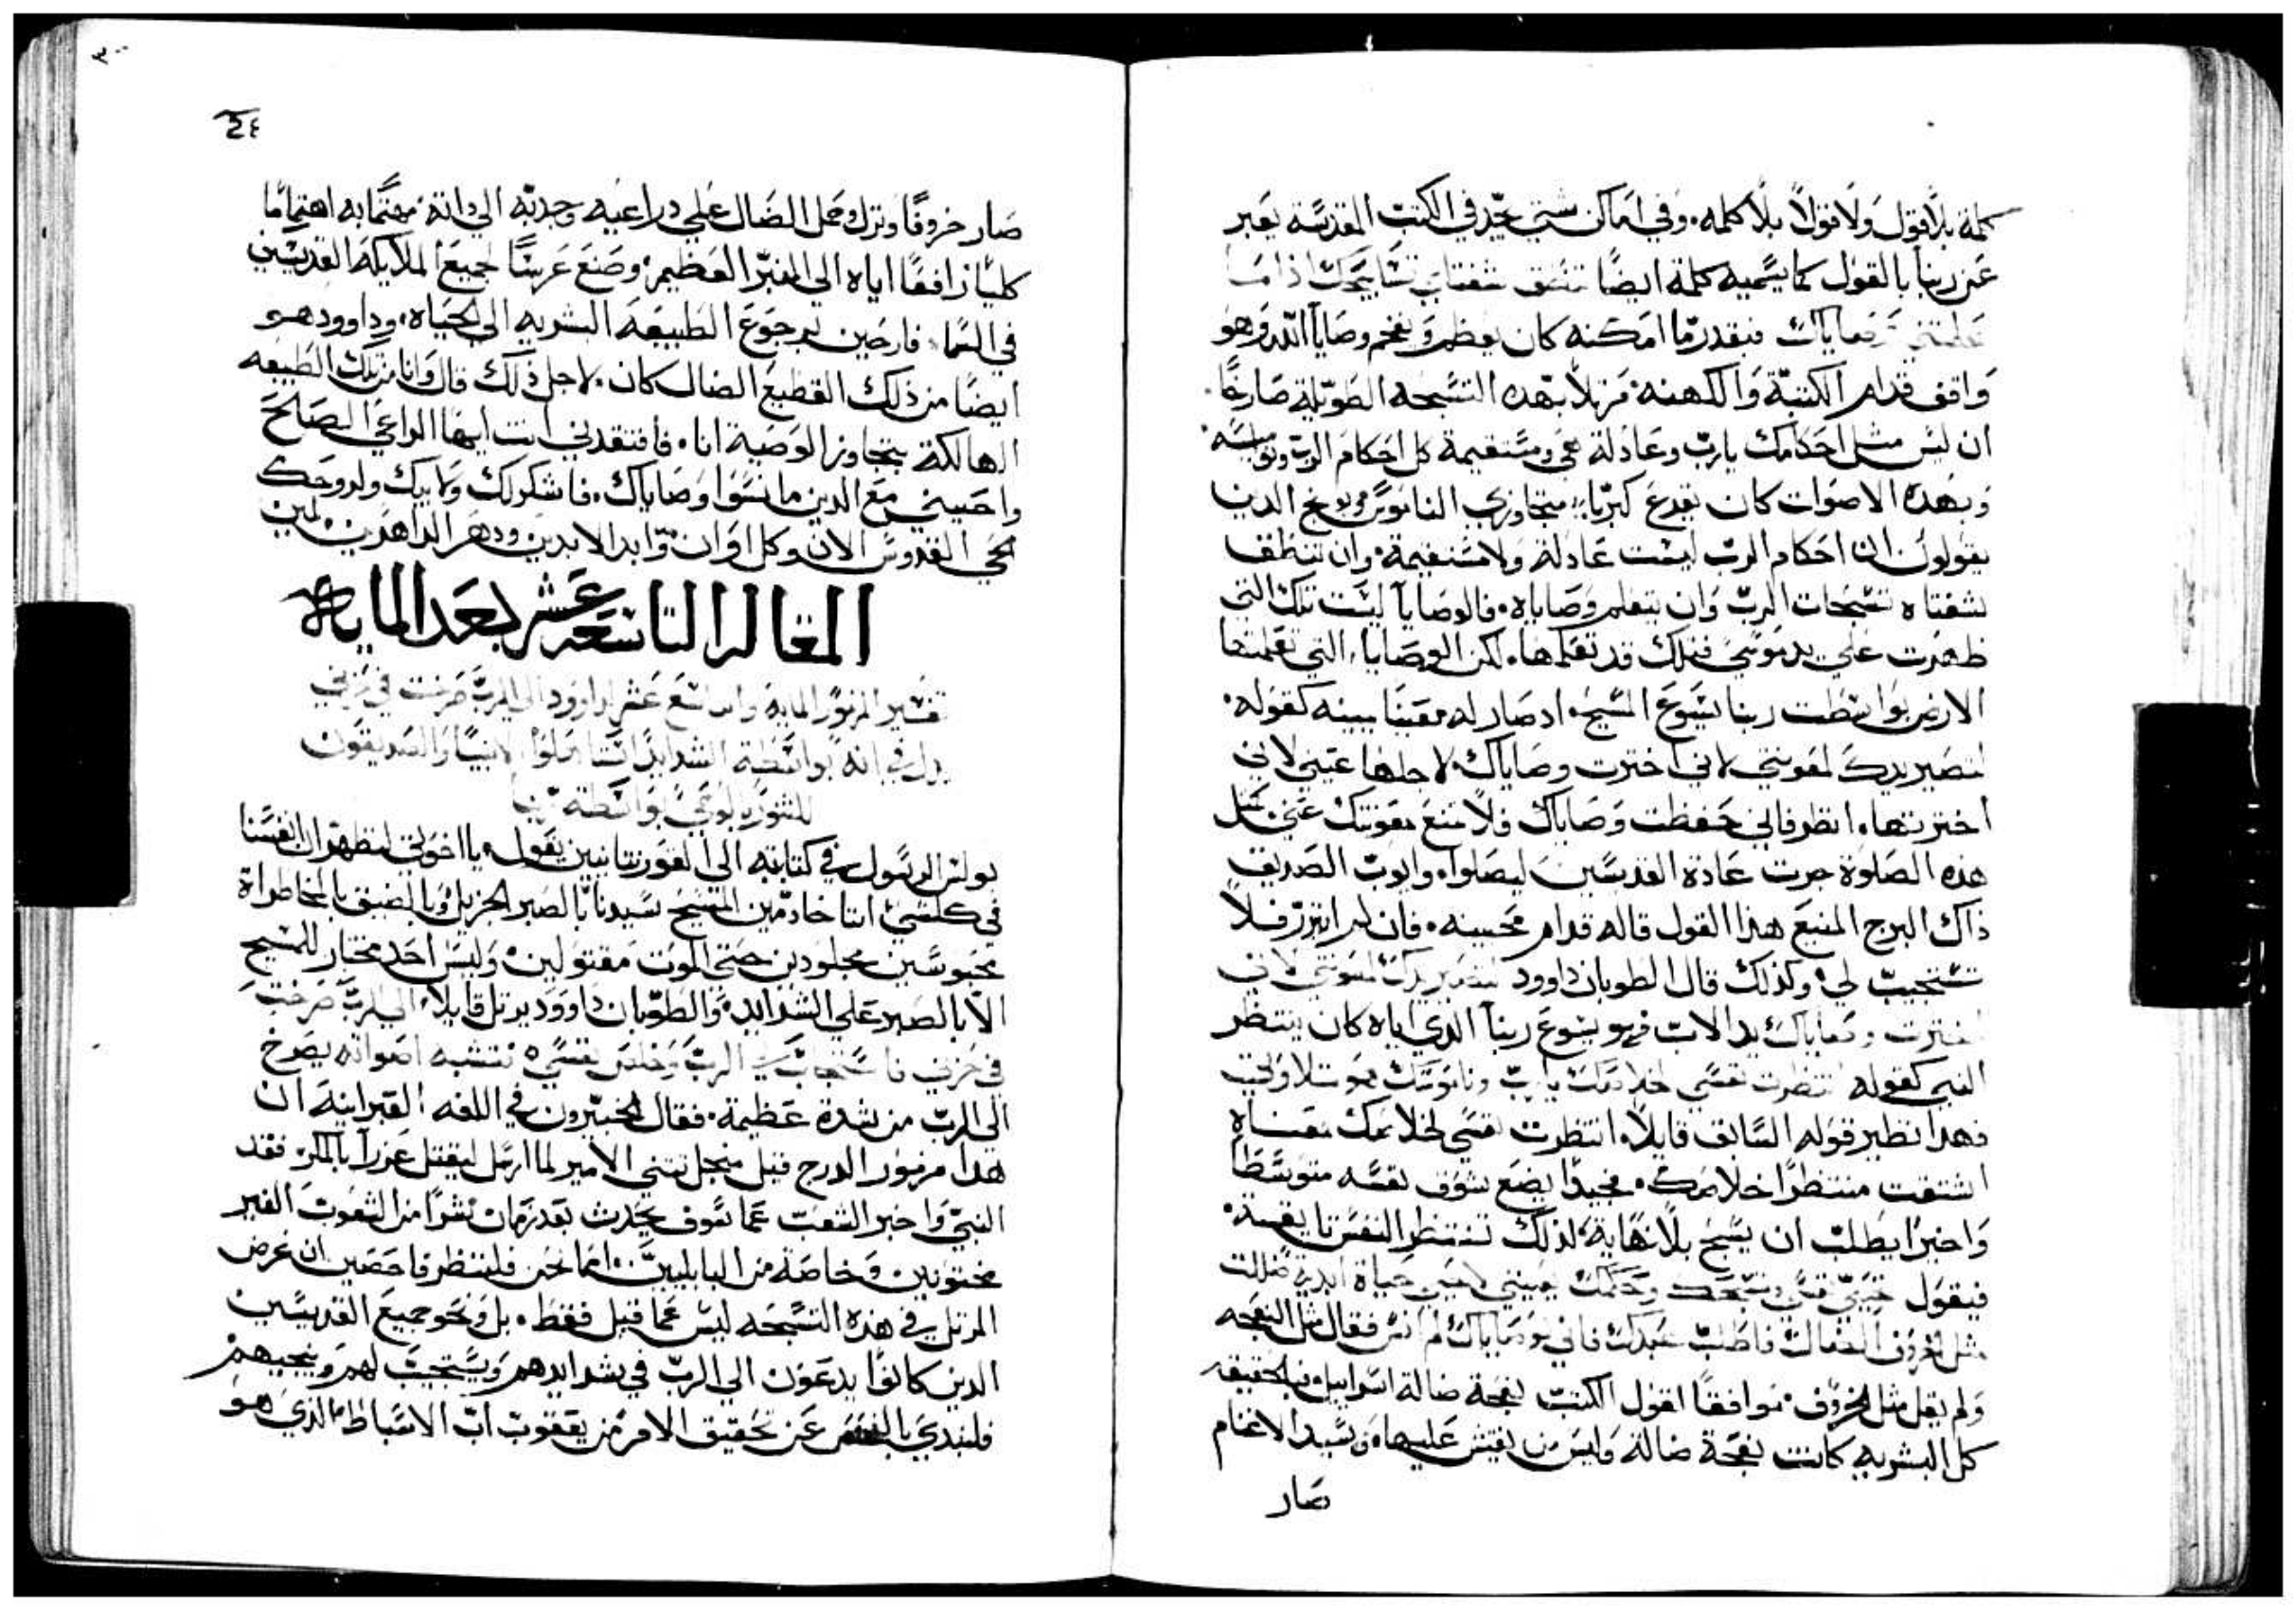 كلمة بلا قول ولا قولاً بلا كلمه. وفي اماكن شتي تجد في الكتب المقدسة يعبر
عن ربنا بالقول كما يسميه كلمة ايضًا تنطق شفتاي تسابيحك اذا ما
علمتني وصاياك فبقدر ما امكنه كان يعظم ويفخم وصايا الله وهو
واقف قدام الكتبة والكهنه مرتلاً بهذه التسبحه الطويلة صارخًا.
ان ليس مثل احكامك يا رب وعادلة هي ومستقيمة كل احكام الرب ونواميسه
وبهذه الاصوات كان يقدع كبريا متجاوزي الناموس ويوبخ الدين
يقولون ان احكام الرب ليست عادلة ولا مستقيمة. وان تنطق
شفتاه تسبحات الرب وان يتعلم وصاياه. فالوصايا ليست تلك التي
ظهرت علي يد موسي فتلك قد تعلمها. لكن الوصايا التي تعلمتها
الارض بواسطت ربنا يسوع المسيح. اد صار له معينا بيمينه كقوله.
لتصير يدك لمعونتي لاني اخترت وصاياك. لاجلها عيني لاني
اخترتها. انظر فاني حفظت وصاياك فلا تمنع معونتك عني مثل
هذه الصلوة جرت عادة القديسين ليصلوا. وايوب الصديق
ذاك البرج المنيع هذا القول قاله قدام محبينه. فان لم
تستجيب لي. وكذلك قال الطوبان داوود لتصير يدك لمعونتي لاني
اخترت وصاياك يد الاب فهو يسوع ربنا الذي اياه كان ينتظر
النبي كقوله انتظرت نفسي خلاصك يا رب وناموسك هو تلاوتي
فهذا نظير قوله السابق قايلاً. انتظرت نفسي لخلاصك معناه
اشتقت منتظرًا خلاصك. فجيدًا يضع شوق نفسه متوسطا
واخيرًا يطلب ان يسبح بلا نهاية. لذلك تنتظر النفس
فيقول تحيي نفسي وتسبحك وحكمك يعينني حياة ابدية ضللت
مثل الخروف الضال فاطلب عبدك فاني لوصاياك لم انس فقال مثل النعجه
ولم يقل مثل الخروف. موافقا لقول الكتب نعجة ضالة اسراييل فبالحقيقه
كل البشريه كانت نعجة ضالة وليس من يفتش عليها. وسيد الاغنام
صار
٣٠٠
٢٤
صار خروفًا وترك وحمل الضال علي دراعيه وجدبه الي داته. مهتمًا به اهتمامًا
كليًا رافعًا اياه الي المنبر العظيم. وصنع عرسًا لجميع الملايكة القديسين
في السما. فارحين لرجوع الطبيعة البشريه الي الحياه. وداوود هو
ايضًا من ذلك القطيع الضال كان. لاجل ذلك قال وانا من تلك الطبيعه
الهالكة بتجاوز الوصية انا. فافتقدني انت ايها الراعي الصالح
واحييني مع الدين ما نسوا وصاياك. فاشكرلك ولابيك ولروحك
المحي القدوس الان وكل اوان وابد الابدين ودهر الداهرين. امين
المقاله التاسعه عشر بعد المايه
تفسير المزمور المايه والتاسع عشر لداوود الي الرب صرخت في حزني
يدل في انه بواسطة الشدايد الانبيا والصديقون
بواسطة
بولس الرسول في كتابته الي القورنتانيين يقول. يا اخوتي لنظهر ان انفسنا
في كلشي اننا خادمين المسيح سيدنا بالصبر الجزيل وبالضيق بالمخاطراة
محبوسين مجلودين حتي الموت مقتولين. وليس احد مختار للمسيح
الا بالصبر علي الشدايد. والطوبان داوود يرتل قايلاً. الي الرب صرخت
في حزني فاستجاب لي الرب وخلص نفسي. اصواته يصرخ
الي الرب من شدة عظيمة. فقال الخبيرون في اللغه العبرانيه ان
هذا مزمور الدرج قيل من اجل الامير لما ارسل ليقتل عزرا بالمكر. فقد
النبي واخبر الشعب عما سوف يحدث بعد زمان من الشعوب الغير
مختونين وخاصة من البابليين. اما نحن فلننظر فاحصين ان غرض
المرتل في هذه التسبحه ليس عما قيل فقط. بل ونحو جميع القديسين
الدين كانوا يدعون الي الرب في شدايدهم ويستجيب لهم وينجيهم
فلنبدي بالفحص عن تحقيق الامر من يعقوب اب الاسباط. الذي هو